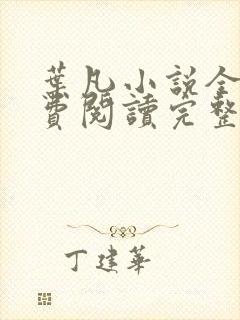 葉凡小説全
費閱讀完整
丁建華